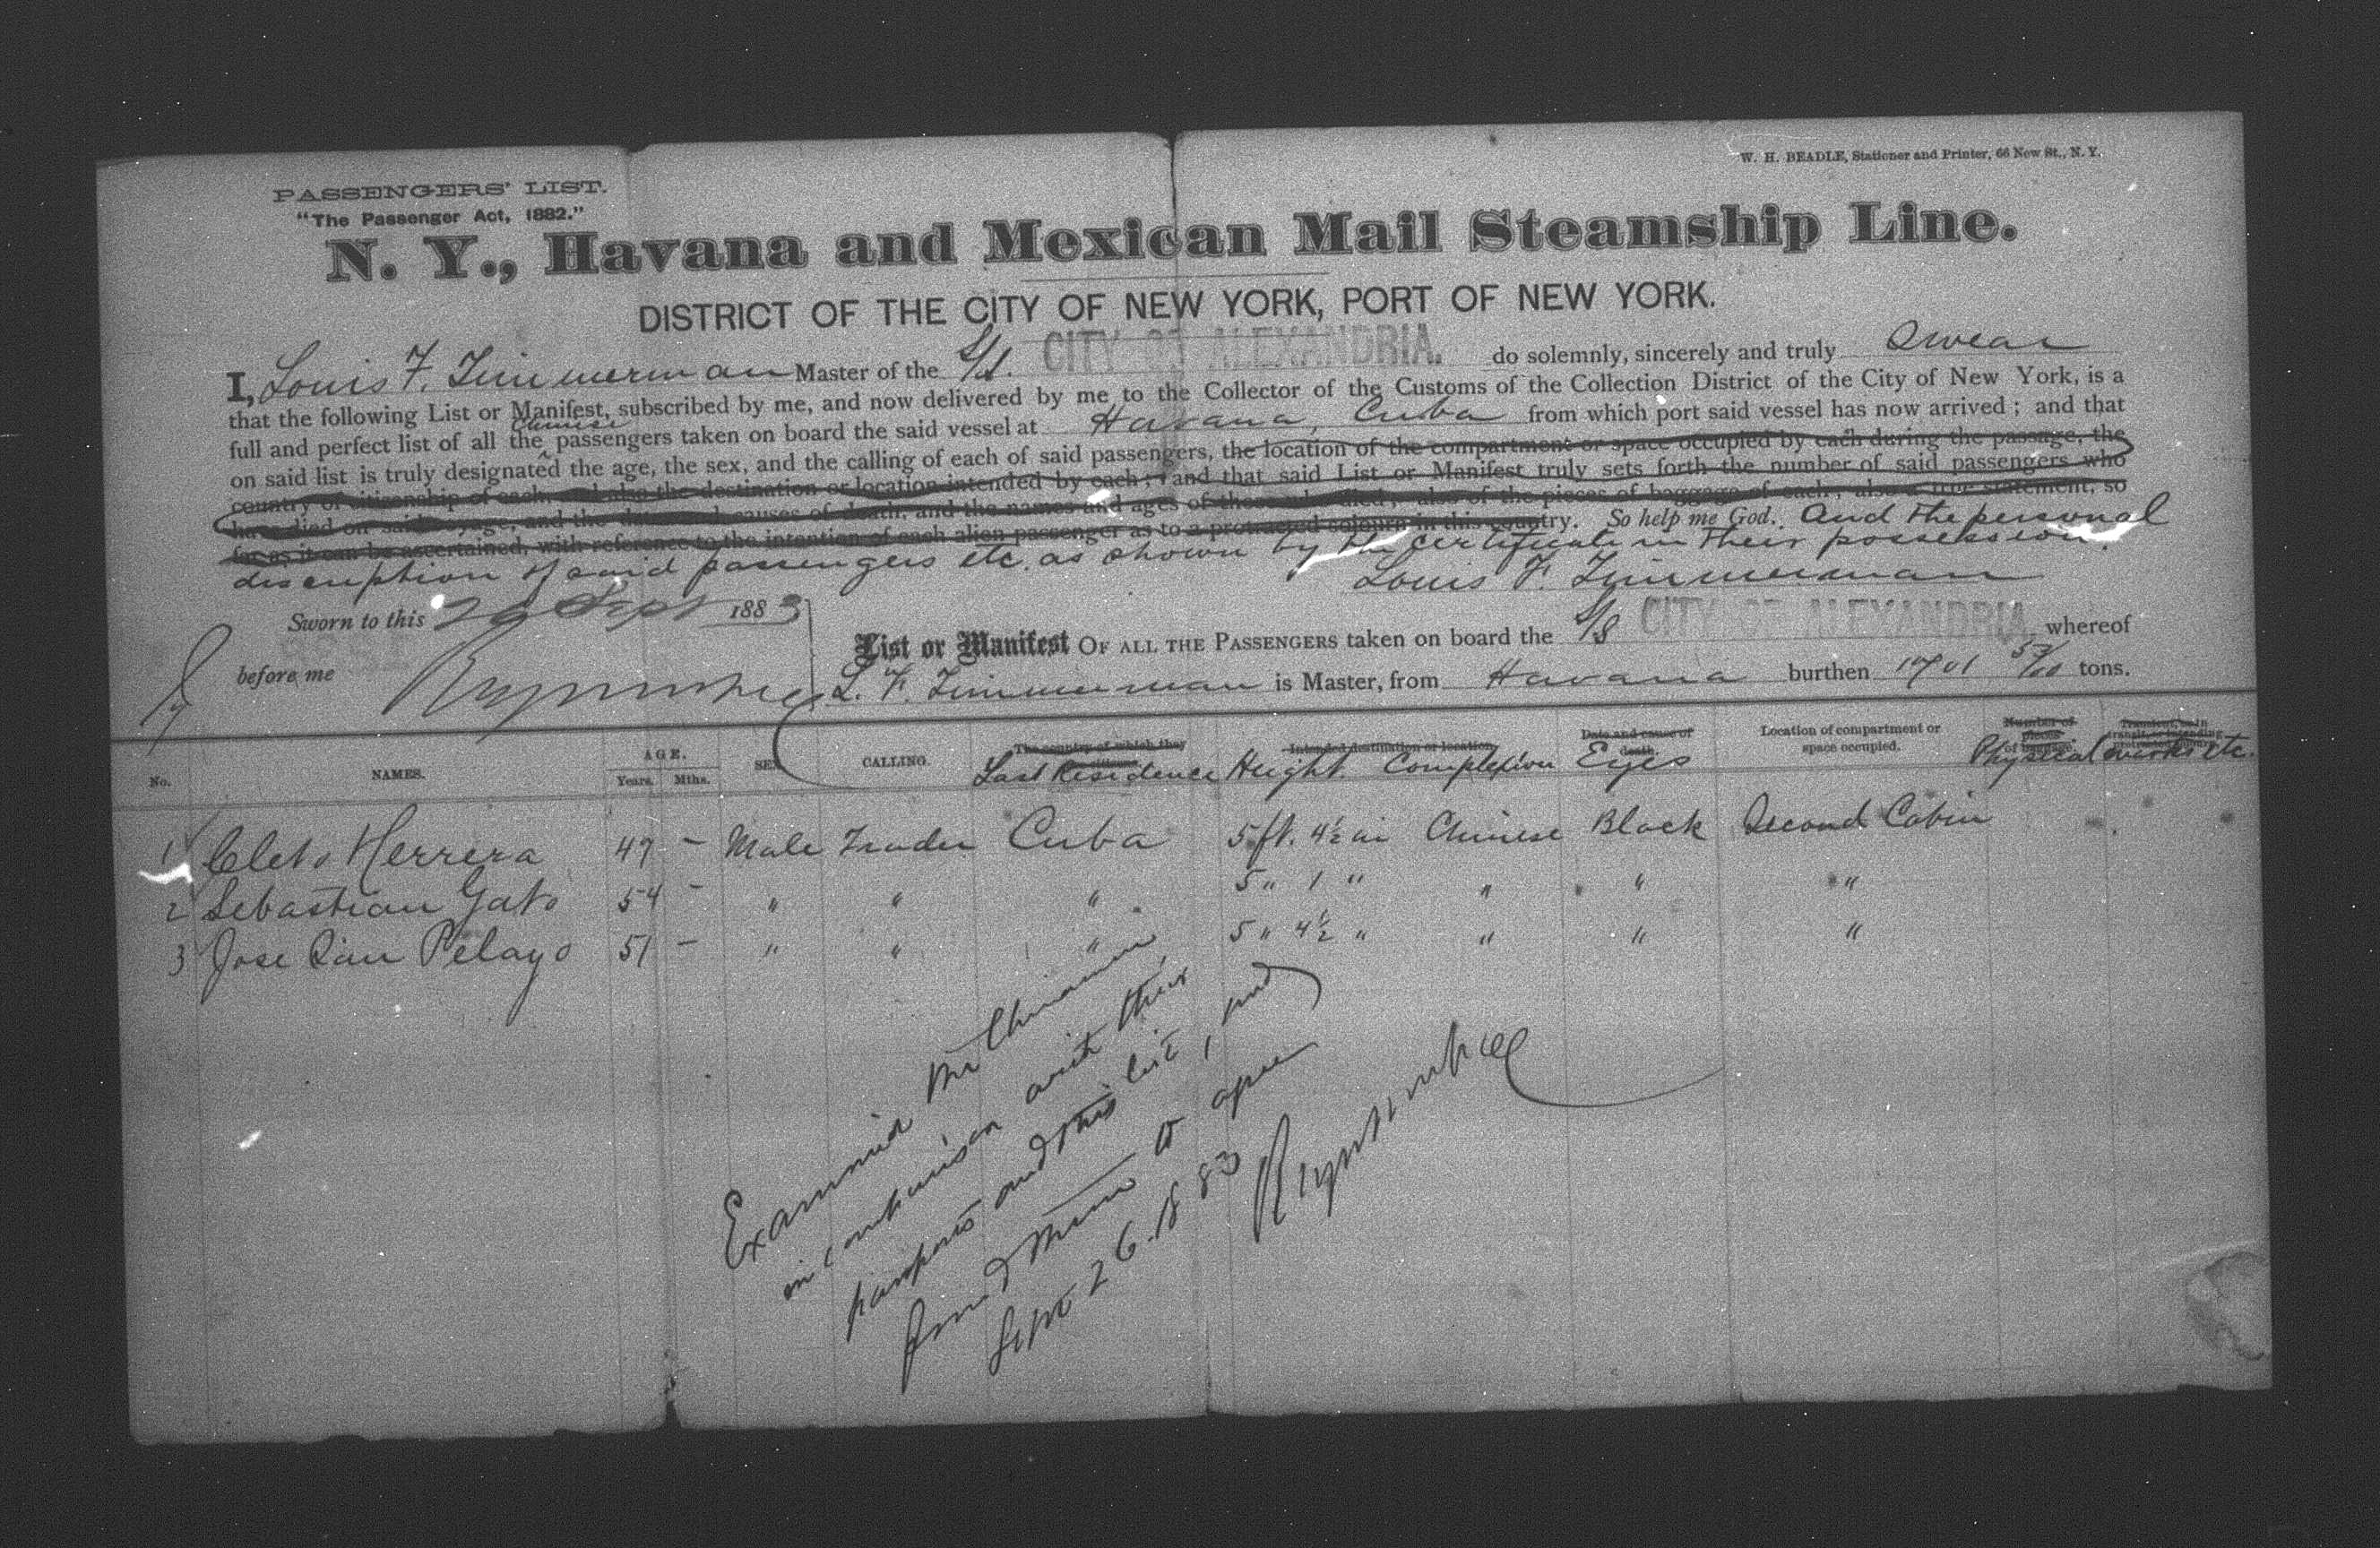 W. H. BEADLE, Stationer and Printer, 66 New St., N. Y.
PASSENGERS' LIST.
"The Passenger Act, 1882."
N. Y., Havana and Mexican Mail Steamship Line.
DISTRICT OF THE CITY OF NEW YORK, PORT OF NEW YORK.
I, Louis F. Timmerman Master of the S/S. CITY OF ALEXANDRIA. do solemnly, sincerely and truly Swear
that the following List or Manifest, subscribed by me, and now delivered by me to the Collector of the Customs of the Collection District of the City of New York, is a
full and perfect list of all the Chinese passengers taken on board the said vessel at Havana, Cuba from which port said vessel has now arrived; and that
on said list is truly designated the age, the sex, and the calling of each of said passengers, the location of the compartment or space occupied by each during the passage, the
country of citizenship of each, and also the destination or location intended by each; and that said List or Manifest truly sets forth the number of said passengers who
have died on said voyage, and the dates and causes of death, and the names and ages of those who died; also of the pieces of baggage of each; also a true statement, so
far as it can be ascertained, with reference to the intention of each alien passenger as to a protracted sojourn in this country. So help me God. And the personal
description of said passengers etc. as shown by the certificate in their possession.
Louis F. Timmerman
Sworn to this 26 Sept 1883
before me
List or Manifest OF ALL THE PASSENGERS taken on board the S/S CITY OF ALEXANDRIA whereof
L. F. Timmerman is Master, from Havana burthen tons.
No. NAMES. AGE. Years. Mths. SEX. CALLING. The country of which they Last Residence Intended destination or location Height Complexion Date and cause of death. Eyes Location of compartment or space occupied. Number of pieces of baggage Physical marks etc.
1 Cleto Herrera 47 - Male Trader Cuba 5 ft. 4½ in Chinese Black Second Cabin
2 Sebastian Gato 54 - " " " 5 " 1 " " " "
3 Jose Pelayo 51 - " " " 5 " 4½ " " " "
Examined the Chinamen
in comparison with their
passports and this list, and
find them to agree
Sept 26. 1883